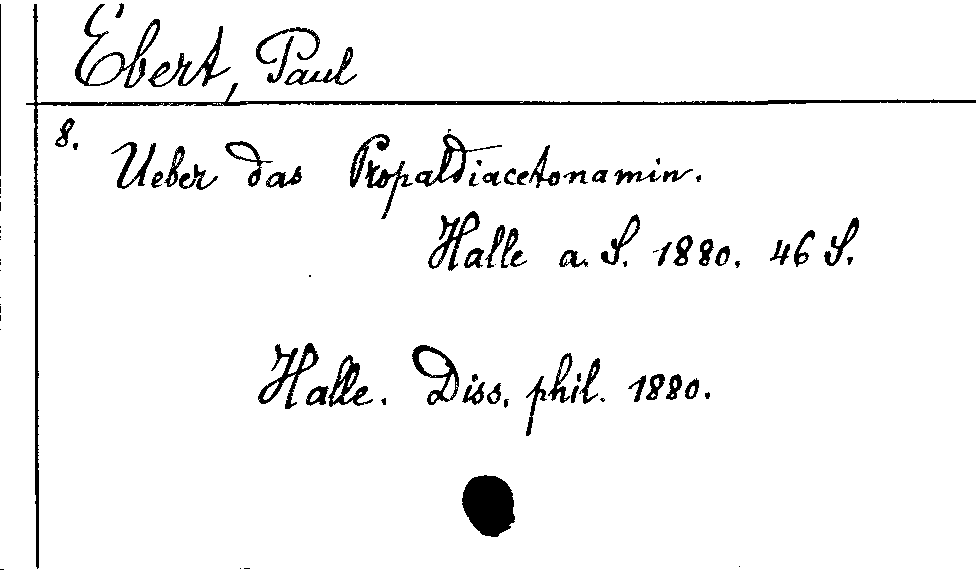 Ebert, Paul
8.
Ueber das Propaldiacetonamin.
Halle a. S. 1880. 46 S.
Halle. Diss. phil. 1880.